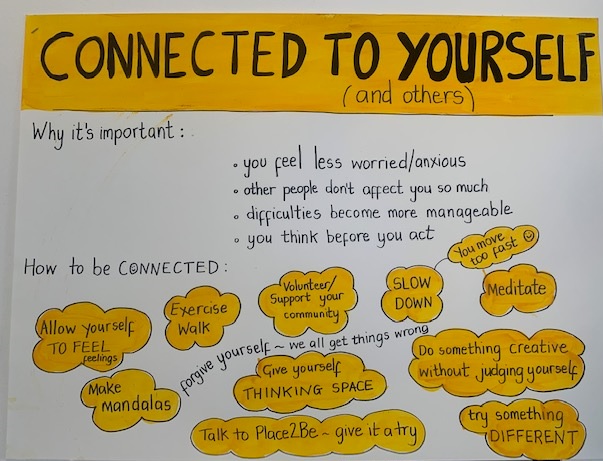 CONNECTED TO YOURSELF
(and others)
Why it's important:
• you feel less worried/anxious
• other people don't affect you so much
• difficulties become more manageable
• you think before you act
How to be CONNECTED:
You move
too fast ☺
Allow yourself
TO FEEL
feelings
Exercise
Walk
Volunteer/
Support your
community
SLOW
DOWN
Meditate
forgive yourself ~ we all get things wrong
Make
mandalas
Give yourself
THINKING SPACE
Do something creative
without judging yourself
Talk to Place2Be ~ give it a try
try something
DIFFERENT